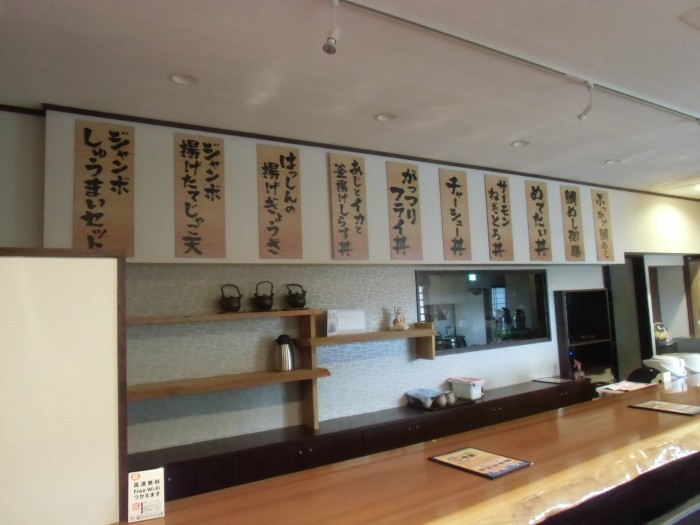 ジャンボ
しゅうまいセット
ジャンボ
揚げたてじゃこ天
はっしんの
揚げぎょうざ
あじとイカと
釜揚げしらす丼
がっつり
フライ丼
チャーシュー丼
サーモン
ねぎとろ丼
めでたい丼
鯛めし御膳
鯛めし
高速無料
Free Wi-Fi
つかえます